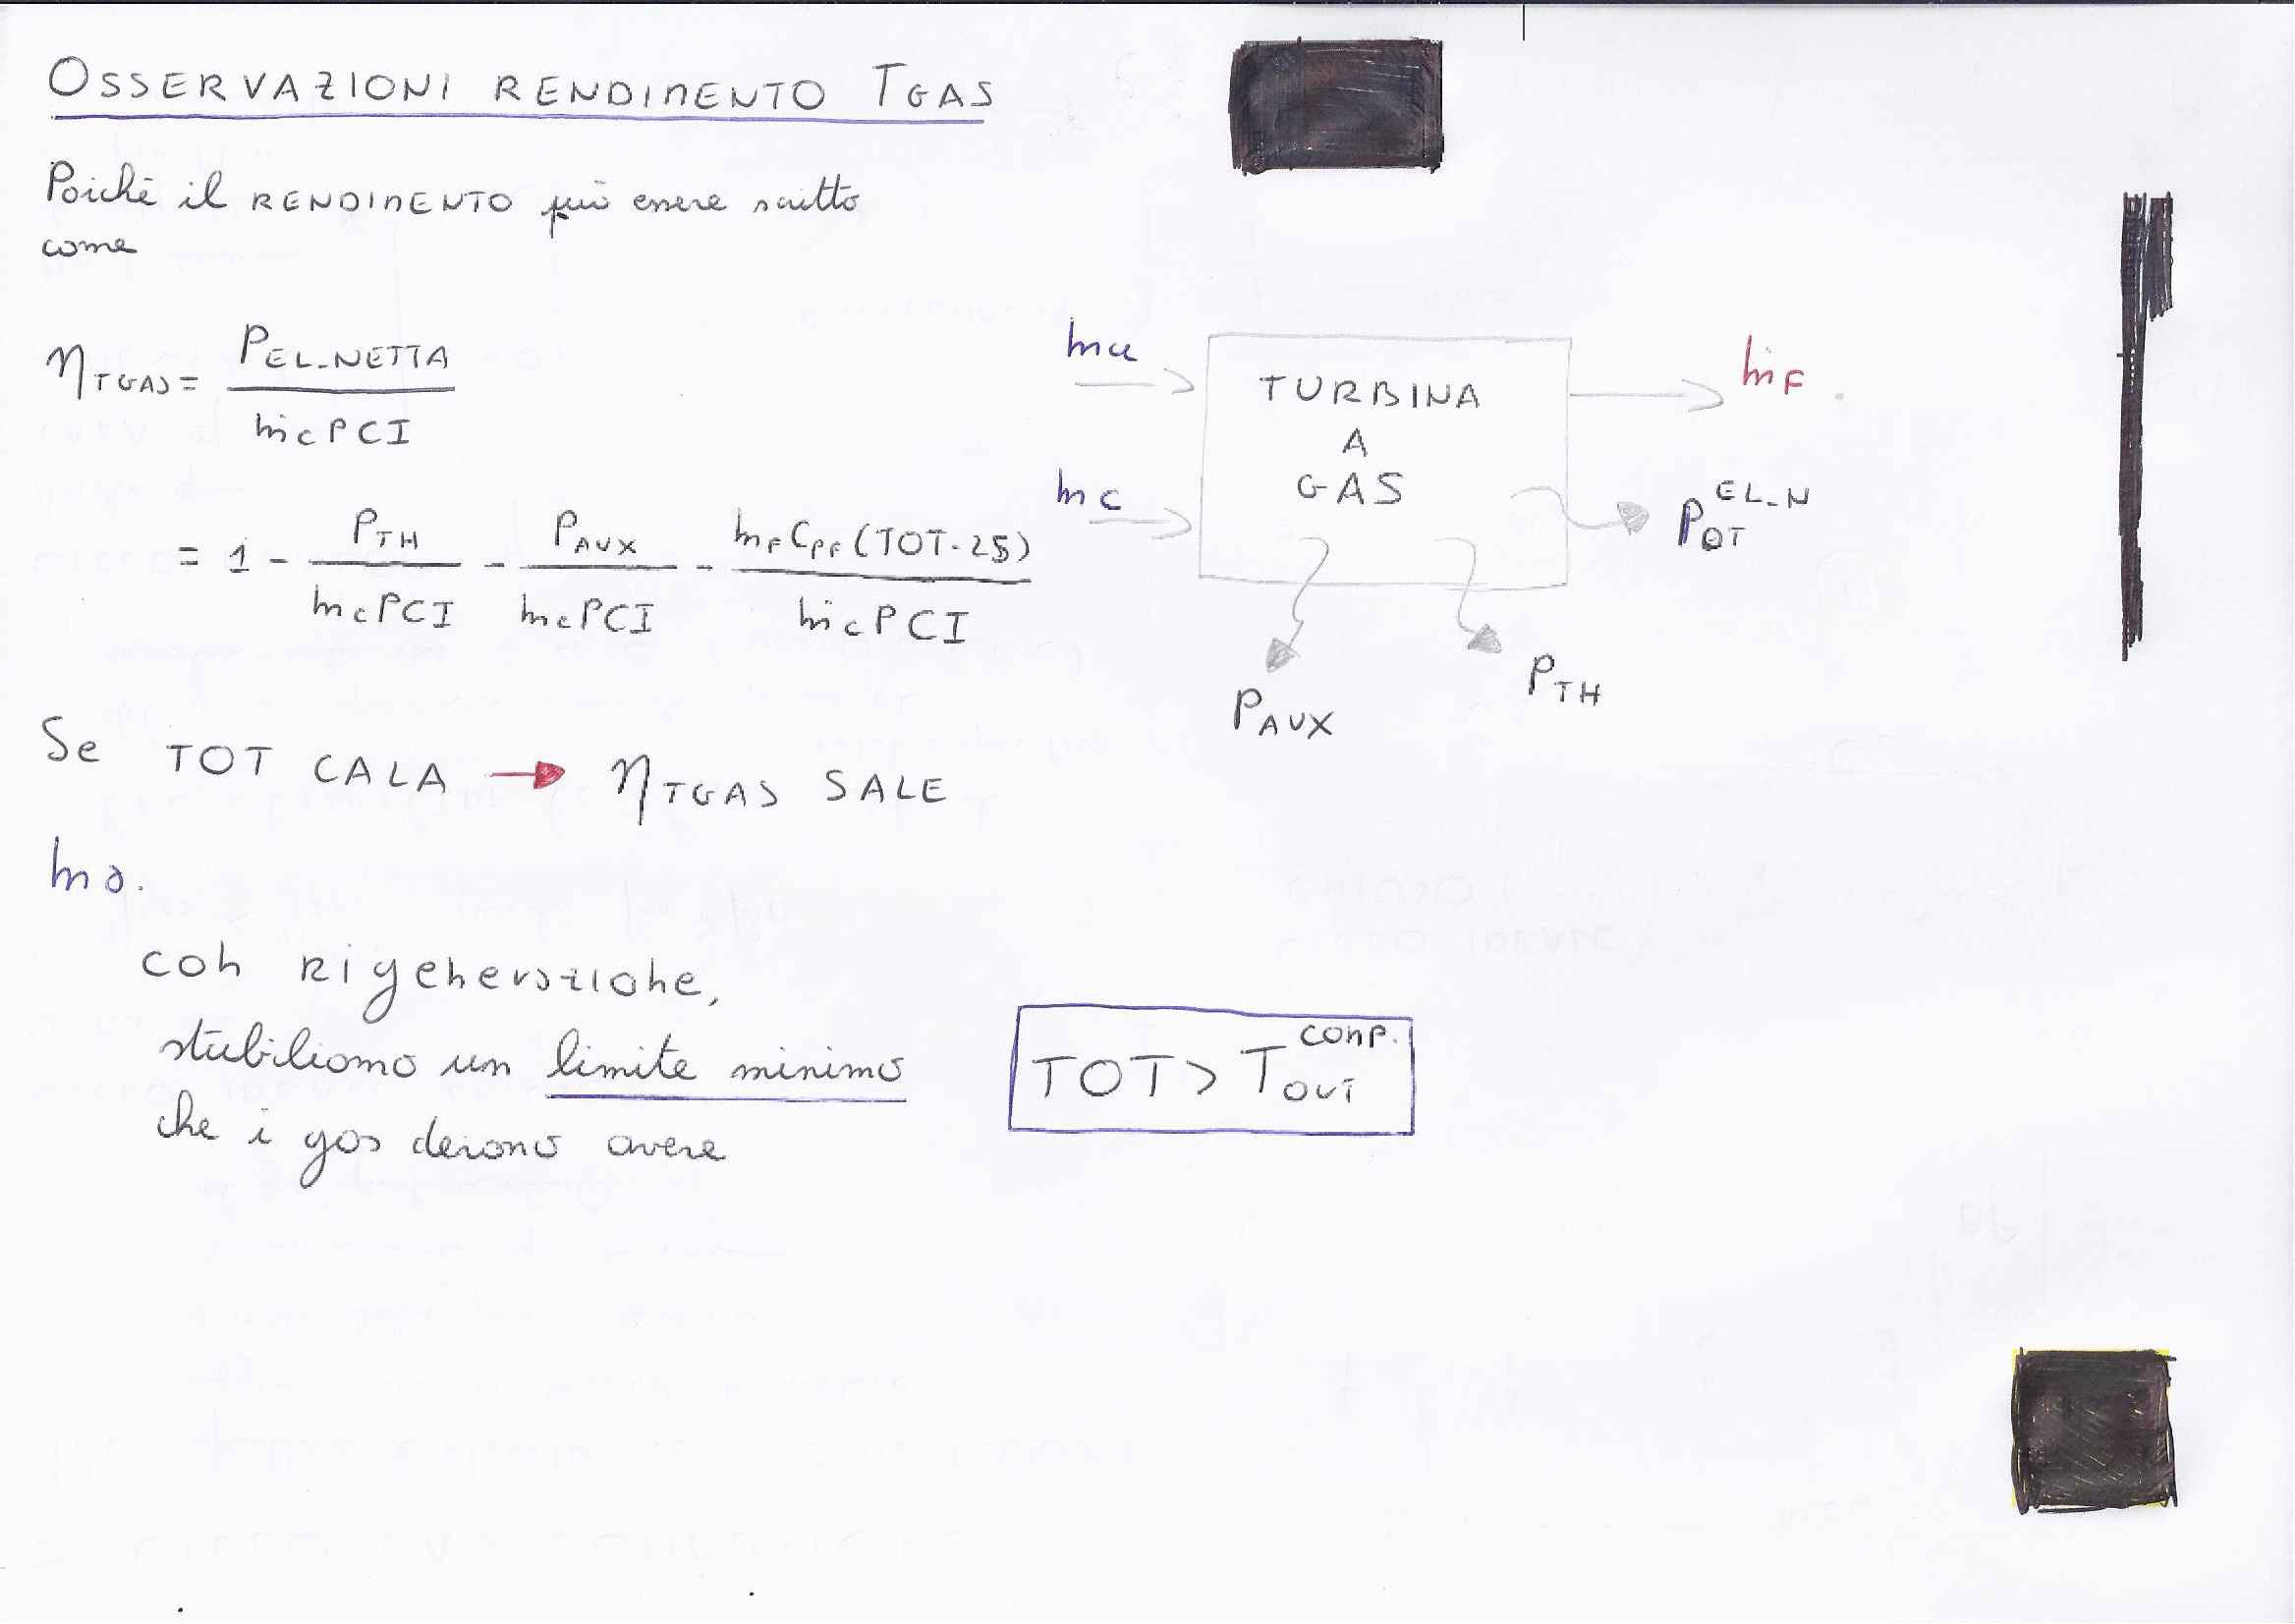 OSSERVAZIONI RENDIMENTO TGAS
Poichè il RENDIMENTO può essere scritto
come
η TGAS = P EL_NETTA / ṁc PCI
= 1 - P TH / ṁc PCI - P AUX / ṁc PCI - ṁF CPF (TOT-25) / ṁc PCI
ṁa
ṁc
TURBINA
A
GAS
ṁF
POT EL_N
P AUX
P TH
Se TOT CALA → η TGAS SALE
ma.
con Rigenerazione,
stabiliamo un limite minimo
che i gas devono avere
TOT > T OUT COMP.